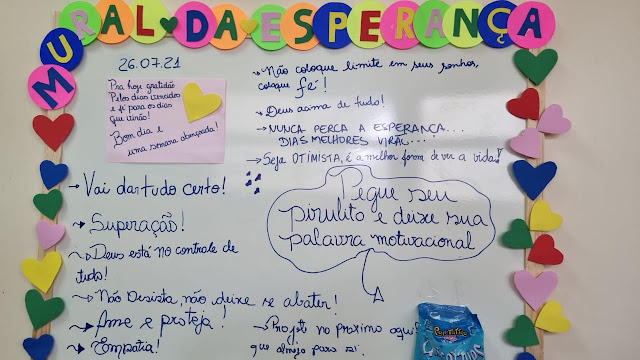 MURAL DA ESPERANÇA
26.07.21
Pra hoje gratidão
Pelos dias vividos
e fé para os dias
que virão!
Bom dia e
uma semana abençoada!
Não coloque limite em seus sonhos,
coloque fé!
Deus acima de tudo!
NUNCA PERCA A ESPERANÇA...
DIAS MELHORES VIRÁL...
Seja OTIMISTA, é a melhor forma de ver a vida!
Vai dar tudo certo!
Superação!
Deus está no controle de
tudo!
Não Desista, não deixe se abater!
Ame e proteja!
Empatia!
Pegue seu
pirulito e deixe sua
palavra motivacional
Projete no próximo aquilo
que almeja para si.